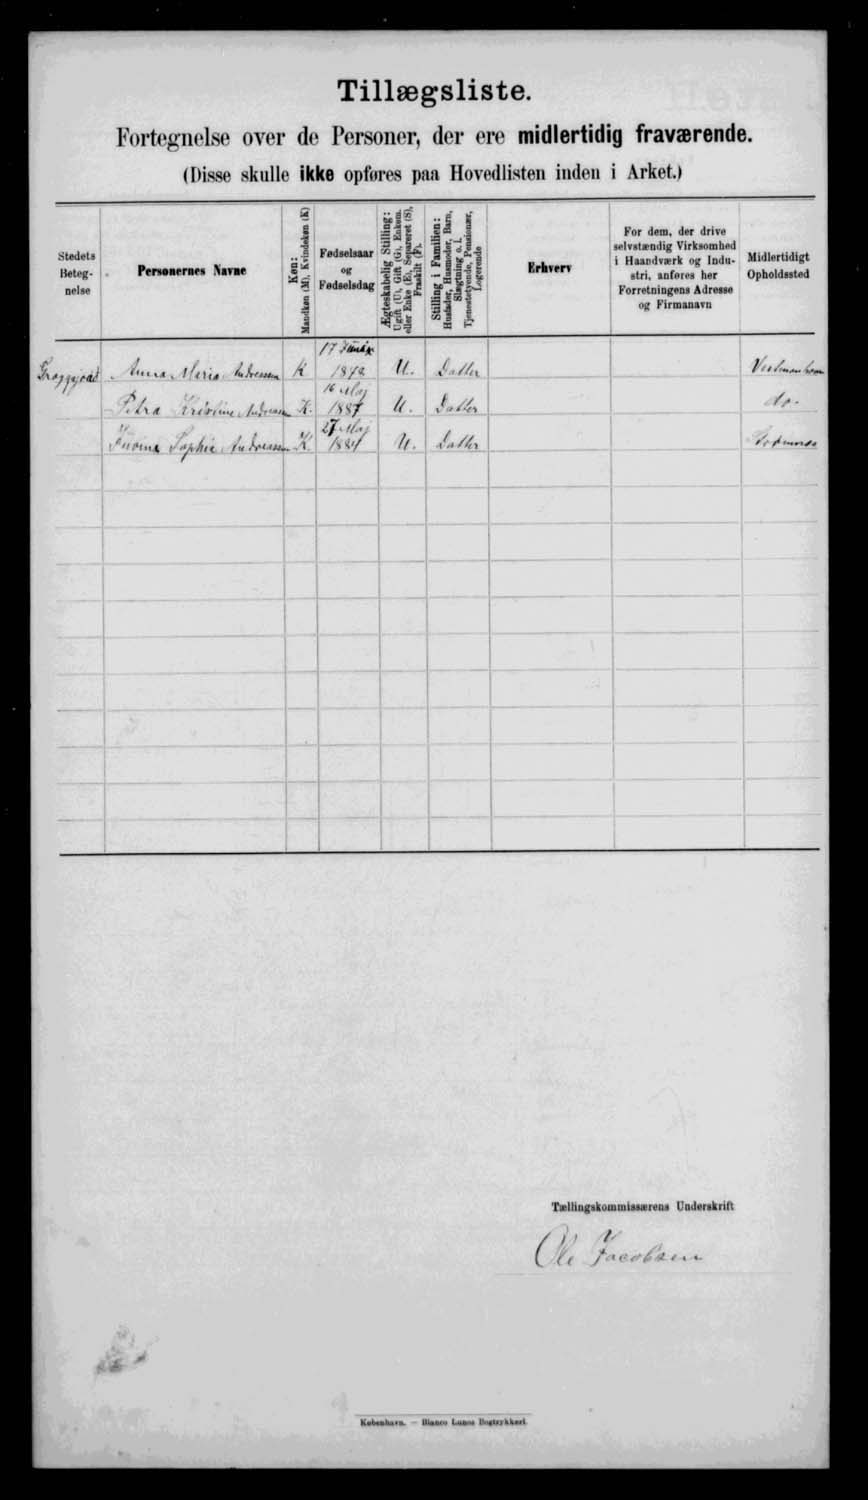 Tillægsliste.
Fortegnelse over de Personer, der ere midlertidig fraværende.
(Disse skulle ikke opføres paa Hovedlisten inden i Arket.)
Stedets Beteg-nelse
Personernes Navne
Køn: Mandkøn (M), Kvindekøn (K)
Fødselsaar og Fødselsdag
Ægteskabelig Stilling: Ugift (U), Gift (G), Enkem. eller Enke (E), Separeret (S), Fraskilt (F).
Stilling i Familien: Husfader, Husmoder, Barn, Slægtning o. l. Tjenestetyende, Pensionær, Logerende
Erhverv
For dem, der drive selvstændig Virksomhed i Haandværk og Indu-stri, anføres her Forretningens Adresse og Firmanavn
Midlertidigt Opholdssted
Anna Maria Andreasen K 17 U. Datter Vestmanhavn
Petra Kristine Andreasen K. 16 Maj 1887 U. Datter do.
Sophie Andreasen K. 27 Maj 1884 U. Datter
Tællingskommissærens Underskrift
Ole Jacobsen
København. — Bianco Lunos Bogtrykkeri.